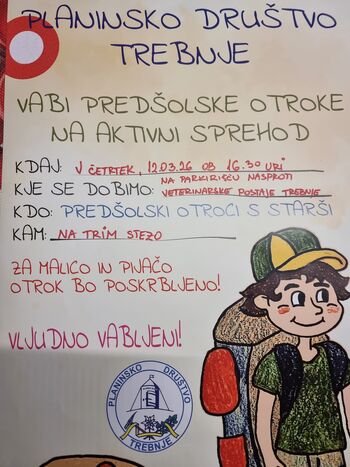 PLANINSKO DRUŠTVO
TREBNJE
VABI PREDŠOLSKE OTROKE
NA AKTIVNI SPREHOD
KDAJ: V ČETRTEK, 12.03.26 OB 16.30 URI
KJE SE DOBIMO: NA PARKIRIŠČU NASPROTI
VETERINARSKE POSTAJE TREBNJE
KDO: PREDŠOLSKI OTROCI S STARŠI
KAM: NA TRIM STEZO
ZA MALICO IN PIJAČO
OTROK BO POSKRBLJENO!
VLJUDNO VABLJENI!
PLANINSKO DRUŠTVO
TREBNJE